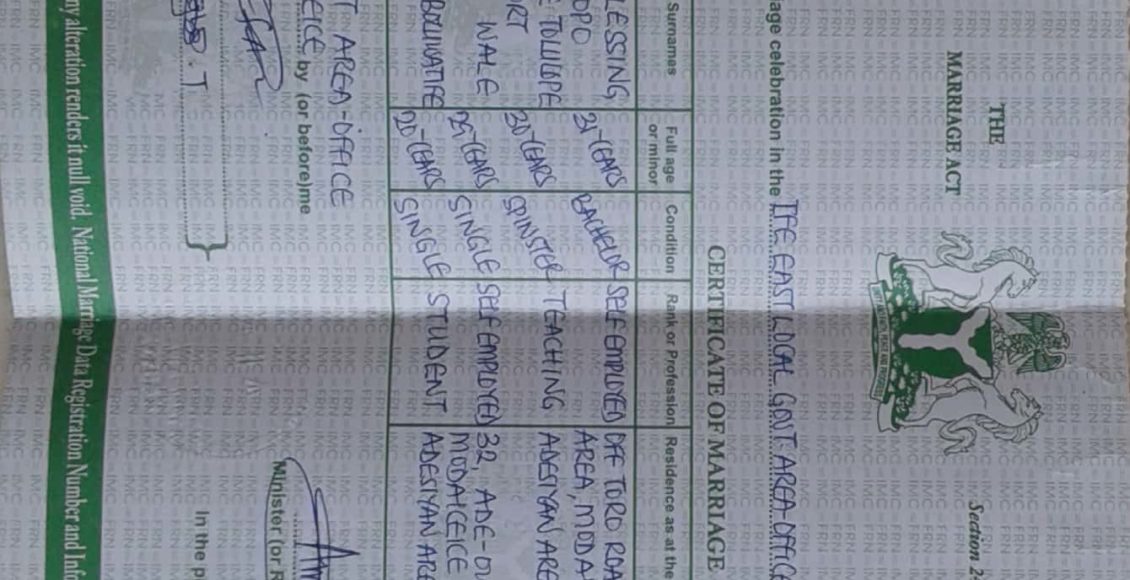 THE
MARRIAGE ACT
Section 2
CERTIFICATE OF MARRIAGE
iage celebration in the IFE EAST LOCAL GOVT AREA OFFICE
Surnames Full age or minor Condition Rank or Profession Residence as at the
LESSING 31 YEARS BACHELOR SELF EMPLOYED OFF TORO ROA
OPO AREA, MODA
E TOLULOPE 30 YEARS SPINSTER TEACHING ADESIYAN ARE
ORT
WALE SINGLE SELF EMPLOYED 32, ADE-O
MODAKEKE
BOLUWATIFE 20 YEARS SINGLE STUDENT ADESIYAN ARE
T AREA OFFICE
by (or before)me
Minister (or R
T
In the p
ny alteration renders it null void. National Marriage Data Registration Number and Info